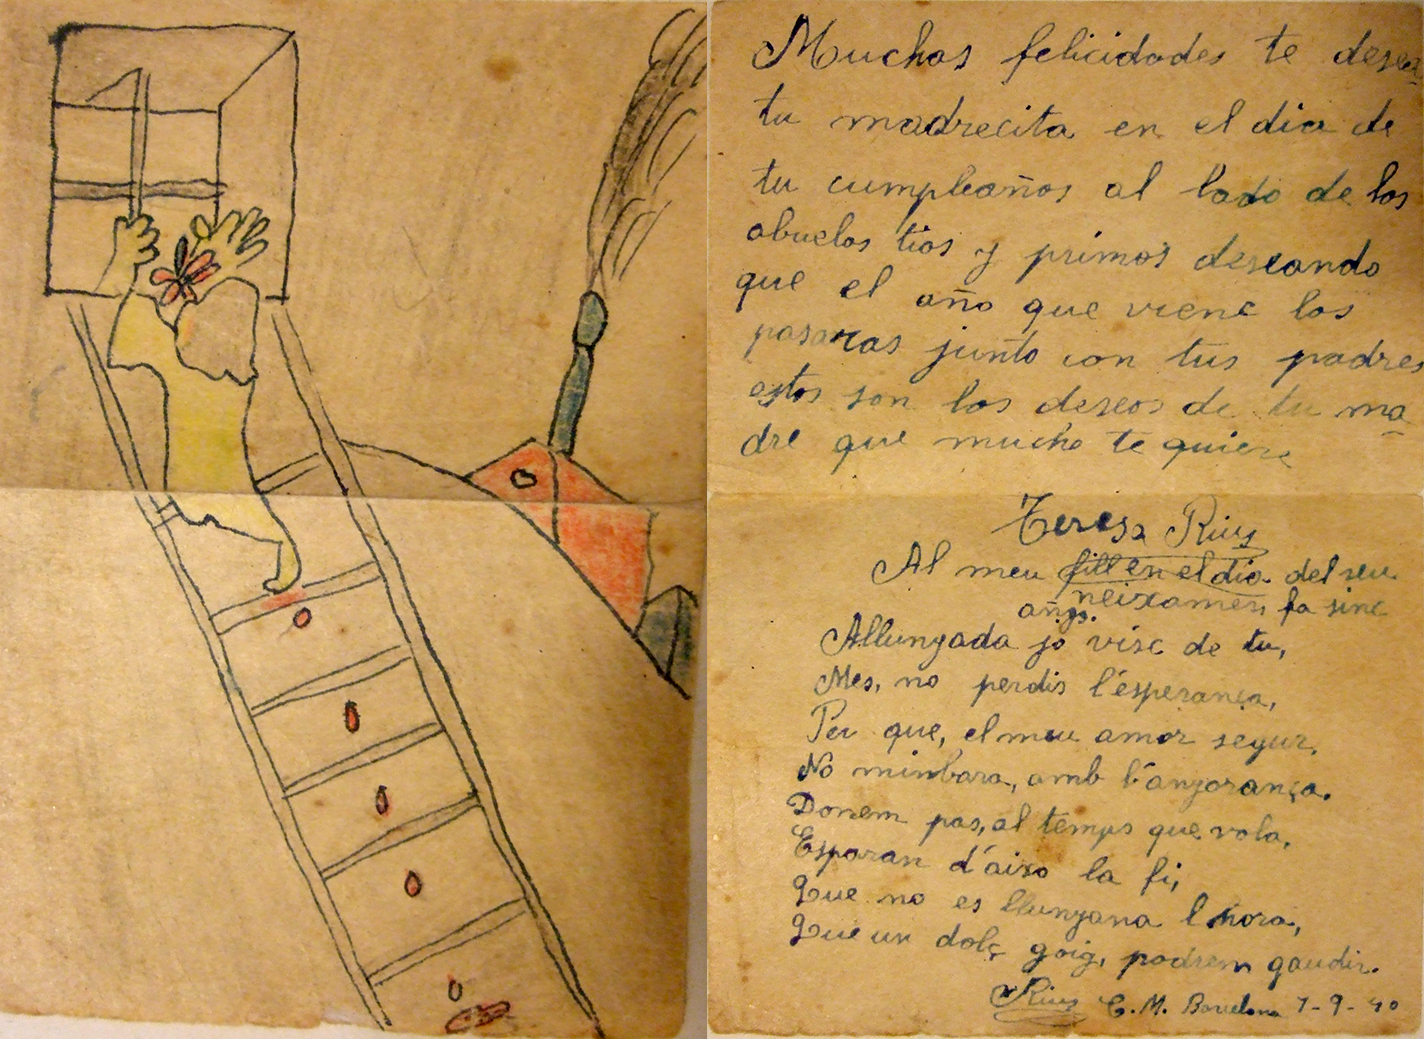 Muchas felicidades te desea
tu madrecita en el dia de
tu cumpleaños al lado de los
abuelos tios y primos deseando
que el año que viene los
pasaras junto con tus padres
estos son los deseos de tu ma-
dre que mucho te quiere
Teresa Rius
Al meu fill en el dia del seu
neixamen, fa sinc
anys.
Allunyada jo visc de tu,
Mes, no perdis l'esperança,
Per que, el meu amor segur,
No minbara, amb l'anyorança.
Donem pas, al temps que vola,
Esparan d'aixo la fi,
Que no es llunyana l hora,
Que un dolç goig, podrem gaudir.
Rius C. M. Barcelona 7-9-40